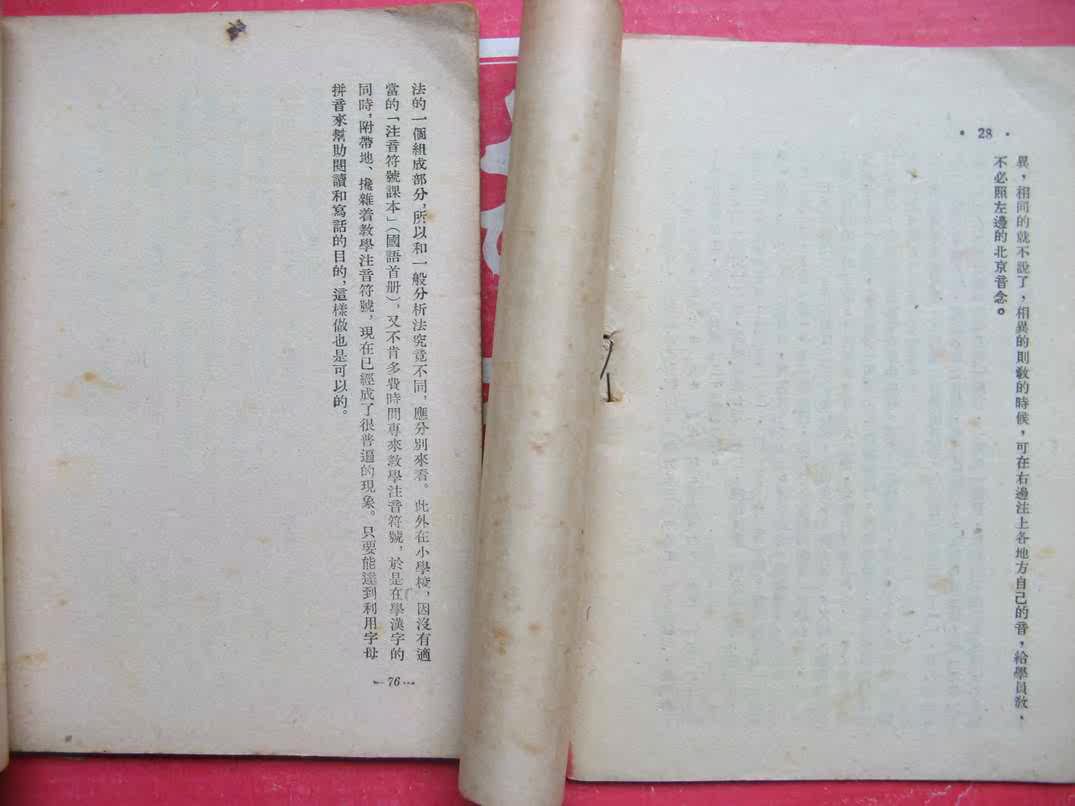 法的一個組成部分，所以和一般分析法究竟不同，應分別來看。此外在小學校，因沒有適
當的「注音符號課本」（國語首册），又不肯多費時間專來敎學注音符號，於是在學漢字的
同時，附帶地、攙雜着敎學注音符號，現在已經成了很普遍的現象。只要能達到利用字母
拼音來幫助閱讀和寫話的目的，這樣做也是可以的。
— 76 —
• 28 •
異，相同的就不說了，相異的則敎的時候，可在右邊注上各地方自己的音，給學員敎，
不必照左邊的北京音念。